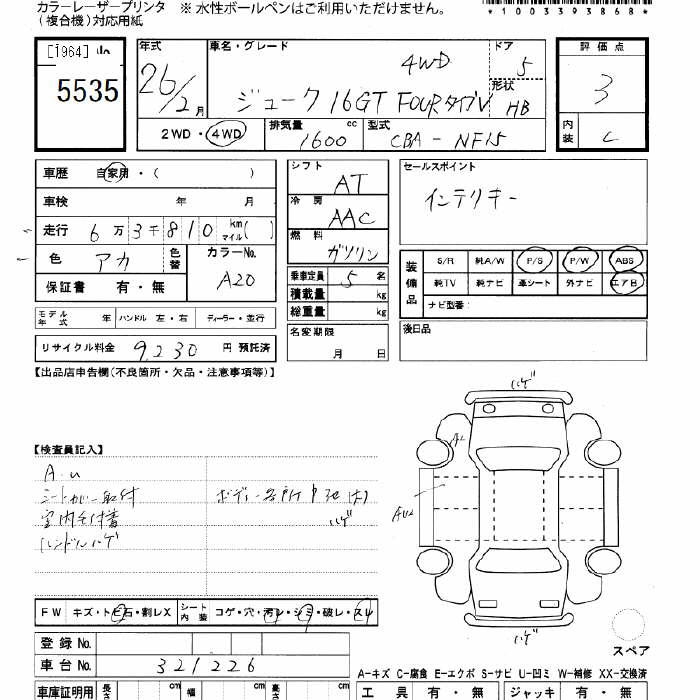 カラーレーザープリンタ ※ 水性ボールペンはご利用いただけません。
(複合機)対応用紙
*1003393868*
[1964]
5535
年式 車名・グレード ドア 評価点
26/2月 4WD 5 3
ジューク 16GT FOURタイプV 形状 HB
2WD・4WD 排気量 1600 cc 型式 CBA-NF15 内装 C
車歴 自家用・( )
シフト AT
セールスポイント
インテリキー
車検 年 月
冷房 AAC
走行 6万3千810 km マイル( )
燃料 ガソリン
色 アカ 色替 カラーNo. A20
保証書 有・無
乗車定員 5 名
積載量 kg
総重量 kg
装備品 S/R 純A/W P/S P/W ABS
純TV 純ナビ 革シート 外ナビ エアB
ナビ型番:
モデル年式 年 ハンドル 左・右 ディーラー・並行
名変期限 月 日
後日品
リサイクル料金 9,230 円 預託済
【出品店申告欄(不良箇所・欠品・注意事項等)】
ハゲ
【検査員記入】
A・U
シートカバー取付
室内キズ付着
ハンドルハゲ
ハゲ
AU2
FW キズ・トビ石・割レX シート内装 コゲ・穴・汚レ・シミ・破レ・スレ
ハゲ
スペア
登録 No.
車台 No. 321226
A-キズ C-腐食 E-エクボ S-サビ U-凹ミ W-補修 XX-交換済
車庫証明用 長さ cm 幅 cm 高さ cm
工具 有・無 ジャッキ 有・無